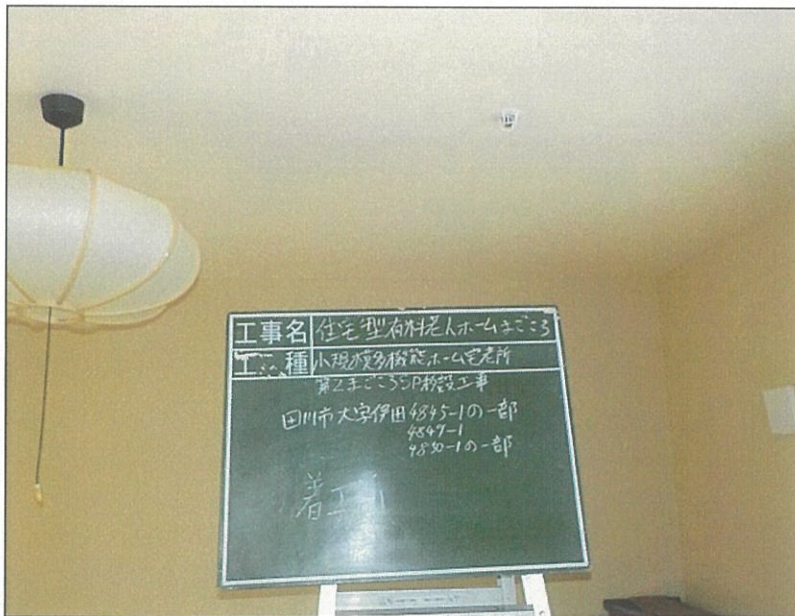 工事名 住宅型有料老人ホームまごころ
工 種 小規模多機能ホーム宅老所
第2まごころSP移設工事
田川市大字伊田4845-1の一部
4849-1
4850-1の一部
着工前